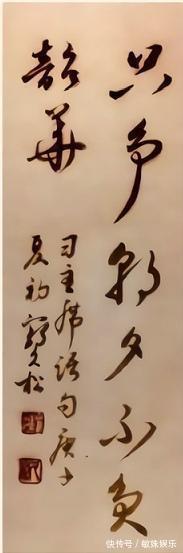 只争朝夕不负
韶華
习主席语句庚子
夏初 松
快传号 / 敏姝娱乐